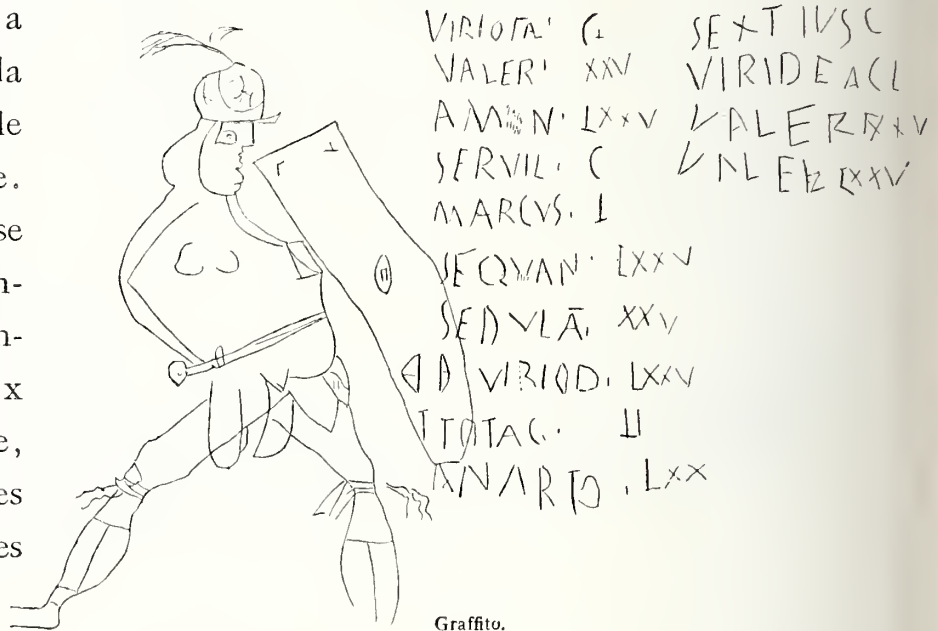 a
la
le
e.
se
n-
n-
x
e,
es
es
VIRIOTA' C⊥
VALER' XXV
AMMN· LXXV
SERVIL· C
MARCVS· ⊥
SEQVAN· LXXV
SEDVLA· XXV
VIRIOD· LXXV
TOTAC· II
ANARTO · LXX
SEXTIVS C
VIRIDEACL
VALER XXV
VALER LXXV
Graffito.